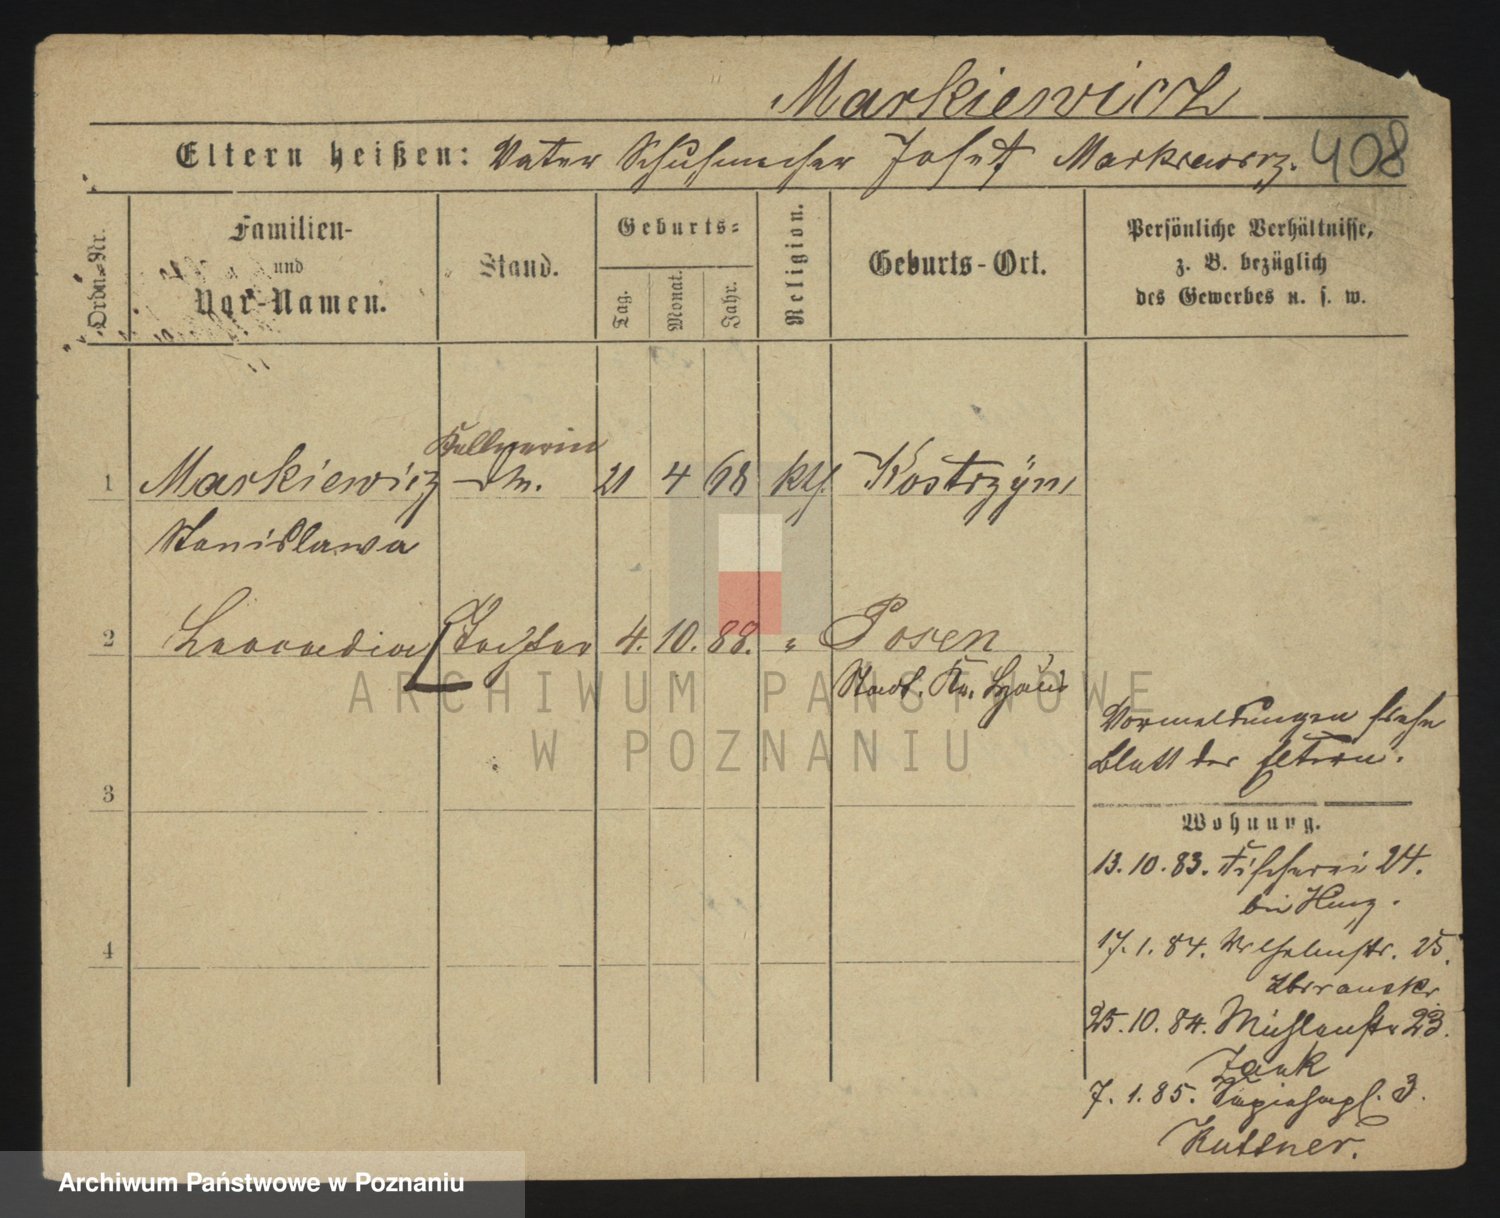 Markiewicz
Eltern heißen: Vater Schuhmacher Josef Markiewicz.
408
Ordn.-Nr.
Familien-
und
Vor-Namen.
Stand.
Geburts-
Tag.
Monat.
Jahr.
Religion.
Geburts-Ort.
Persönliche Verhältnisse,
z. B. bezüglich
des Gewerbes u. s. w.
Kellnerin
1 Markiewicz 21 4 68 kth. Kostrzyn
Stanislawa
2 Leocadia Tochter 4. 10. 88. " Posen
Stadt. Kr.
ARCHIWUM PAŃSTWOWE
W POZNANIU
Vormeldungen siehe
Blatt der Eltern.
3
Wohnung.
13. 10. 83. Fischerei 24.
bei
4
17. 1. 84. Wilhelmstr. 25.
25. 10. 84. Mühlenstr 23.
Jank
7. 1. 85. Sapiehapl. 3.
Kuttner.
Archiwum Państwowe w Poznaniu